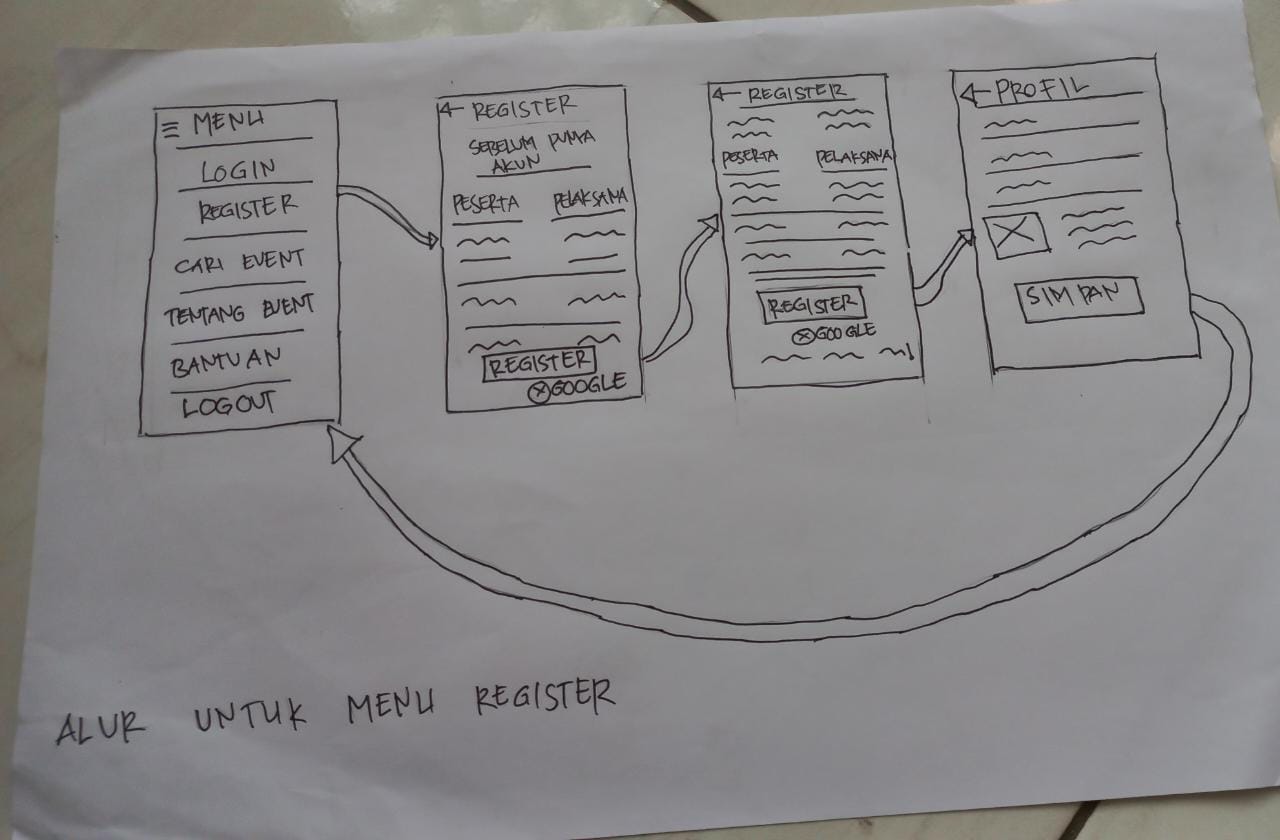 MENU
LOGIN
REGISTER
CARI EVENT
TENTANG EVENT
BANTUAN
LOGOUT
REGISTER
SEBELUM PUNYA
AKUN
PESERTA PELAKSANA
REGISTER
GOOGLE
REGISTER
PESERTA PELAKSANA
REGISTER
GOOGLE
PROFIL
SIMPAN
ALUR UNTUK MENU REGISTER